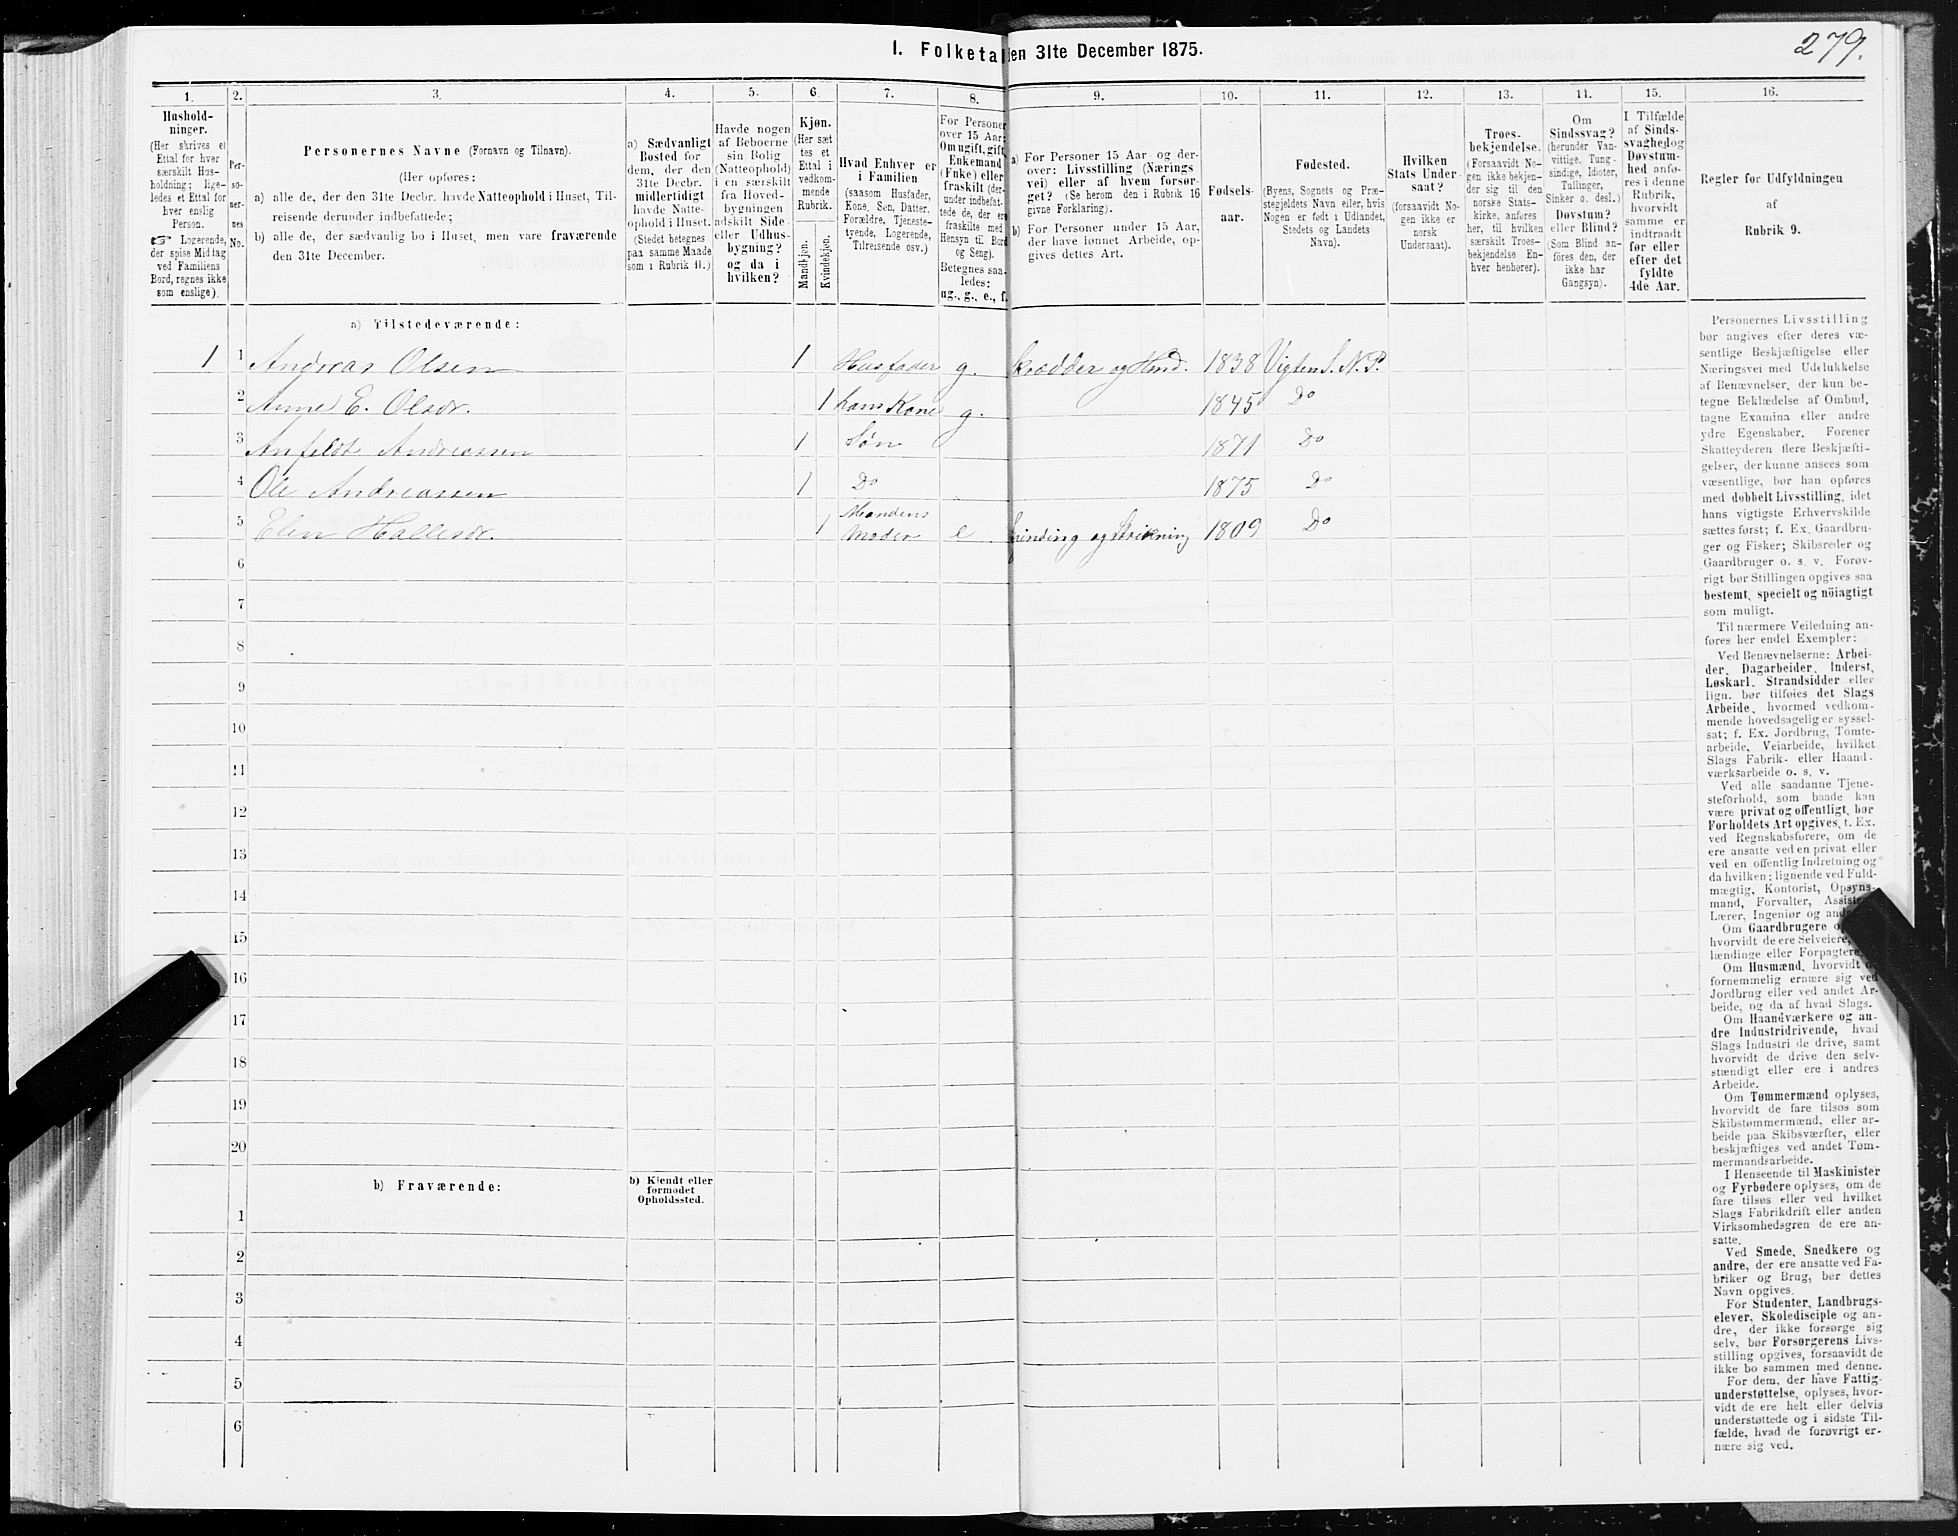 279.
I. Folketal den 31te December 1875.
1.
2.
3.
4.
5.
6.
7.
8.
9.
10.
11.
12.
13.
14.
15.
16.
Hushold-
ninger.
(Her skrives et
Ettal for hver
særskilt Hus-
holdning; lige-
ledes et Ettal for
hver enslig
Person.
☞ Logerende,
der spise Middag
ved Familiens
Bord, regnes ikke
som enslige).
Per-
so-
ner-
nes
No.
Personernes Navne (Fornavn og Tilnavn).
(Her opføres:
a) alle de, der den 31te Decbr. havde Natteophold i Huset, Til-
reisende derunder indbefattede;
b) alle de, der sædvanlig bo i Huset, men vare fraværende
den 31te December.
a) Sædvanligt
Bosted for
dem, der den
31te Decbr.
midlertidigt
havde Natte-
ophold i Huset.
(Stedet betegnes
paa samme Maade
som i Rubrik 11.)
Havde nogen
af Beboerne
sin Bolig
(Natteophold)
i en særskilt
fra Hoved-
bygningen
adskilt Side-
eller Udhus-
bygning?
og da i
hvilken?
Kjøn.
(Her sæt-
tes et
Ettal i
vedkom-
mende
Rubrik.
Mandkjøn.
Kvindekjøn.
Hvad Enhver er
i Familien
(saasom Husfader,
Kone, Søn, Datter,
Forældre, Tjeneste-
tyende, Logerende,
Tilreisende osv.)
For Personer
over 15 Aar:
Om ugift, gift,
Enkemand
(Enke) eller
fraskilt (der-
under indbefat-
tede de, der ere
fraskilte med
Hensyn til Bord
og Seng).
Betegnes saa-
ledes:
ug., g., e., f.
a) For Personer 15 Aar og der-
over: Livsstilling (Nærings-
vei) eller af hvem forsør-
get? (Se herom den i Rubrik 16
givne Forklaring).
b) For Personer under 15 Aar,
der have lønnet Arbeide, op-
gives dettes Art.
Fødsels-
aar.
Fødested.
(Byens, Sognets og Præ-
stegjeldets Navn eller, hvis
Nogen er født i Udlandet,
Stedets og Landets
Navn).
Hvilken
Stats Under-
saat?
(forsaavidt No-
gen ikke er
norsk
Undersaat).
Troes-
bekjendelse.
(Forsaavidt No-
gen ikke bekjen-
der sig til den
norske Stats-
kirke, anføres
her, til hvilken
særskilt Troes-
bekjendelse En-
hver henhører).
Om
Sindssvag?
(herunder Van-
vittige, Tung-
sindige, Idioter,
Tullinger,
Sinker o. desl.)
Døvstum?
eller Blind?
(Som Blind an-
føres den, der
ikke har
Gangsyn).
I Tilfælde
af Sinds-
svaghed og
Døvstum-
hed anfø-
res i denne
Rubrik,
hvorvidt
samme er
indtraadt
før eller
efter det
fyldte
4de Aar.
Regler for Udfyldningen
af
Rubrik 9.
a) Tilstedeværende:
1 1 Andreas Olsen 1 Husfader g. Skrædder og Husd. 1838 Vigten S. N. P.
2 Anne E. Olsdr. 1 hans Kone g. 1845 Do
3 Anfeldt Andreassen 1 Søn 1871 Do
4 Ole Andreassen 1 Do 1875 Do
5 Elen Hallesdr. 1 Mandens
Moder e Spinding og Strikning 1809 Do
6
7
8
9
10
11
12
13
14
15
16
17
18
19
20
b) Fraværende:
b) Kjendt eller
formodet
Opholdssted.
1
2
3
4
5
6
Personernes Livsstilling
bør angives efter deres væ-
sentlige Beskjæftigelse eller
Næringsvei med Udelukkelse
af Benævnelser, der kun be-
tegne Beklædelse af Ombud,
tagne Examina eller andre
ydre Egenskaber. Forener
Skatteyderen flere Beskjæfti-
gelser, der kunne ansees som
væsentlige, bør han opføres
med dobbelt Livsstilling, idet
hans vigtigste Erhvervskilde
sættes først; f. Ex. Gaardbru-
ger og Fisker; Skibsreder og
Gaardbruger o. s. v. Forøv-
rigt bør Stillingen opgives saa
bestemt, specielt og nöiagtigt
som muligt.
Til nærmere Veiledning an-
føres her endel Exempler:
Ved Benævnelserne: Arbei-
der, Dagarbeider, Inderst,
Løskarl, Strandsidder eller
lign. bør tilføies det Slags
Arbeide, hvormed vedkom-
mende hovedsagelig er syssel-
sat; f. Ex. Jordbrug, Tomte-
arbeide, Veiarbeide, hvilket
Slags Fabrik- eller Haand-
værksarbeide o. s. v.
Ved alle saadanne Tjene-
steforhold, som baade kan
være privat og offentligt, bør
Forholdets Art opgives, t. Ex.
ved Regnskabsførere, om de
ere ansatte ved en privat eller
ved en offentlig Indretning og
da hvilken; lignende ved Fuld-
mægtig, Kontorist, Opsyns-
mand, Forvalter,
Lærer, Ingeniør og
Om Gaardbrugere
hvorvidt de ere Selveiere,
lændinge eller Forpagtere.
Om Husmænd, hvorvidt de
fornemmelig ernære sig ved
Jordbrug eller ved andet Ar-
beide, og da af hvad Slags.
Om Haandværkere og an-
dre Industridrivende, hvad
Slags Industri de drive, samt
hvorvidt de drive den selv-
stændigt eller ere i andres
Arbeide.
Om Tømmermænd oplyses,
hvorvidt de fare tilsøs som
Skibstømmermænd, eller ar-
beide paa Skibsværfter, eller
beskjæftiges ved andet Tøm-
mermandsarbeide.
I Henseende til Maskinister
og Fyrbødere oplyses, om de
fare tilsøs eller ved hvilket
Slags Fabrikdrift eller anden
Virksomhedsgren de ere an-
satte.
Ved Smede, Snedkere og
andre, der ere ansatte ved Fa-
briker og Brug, bør dettes
Navn opgives.
For Studenter, Landbrugs-
elever, Skoledisciple og an-
dre, der ikke forsørge sig
selv, bør Forsørgerens Livs-
stilling opgives, forsaavidt de
ikke bo sammen med denne.
For dem, der have Fattig-
understøttelse, oplyses, hvor-
vidt de ere helt eller delvis
understøttede og i sidste Til-
fælde, hvad de forøvrigt er-
nære sig ved.